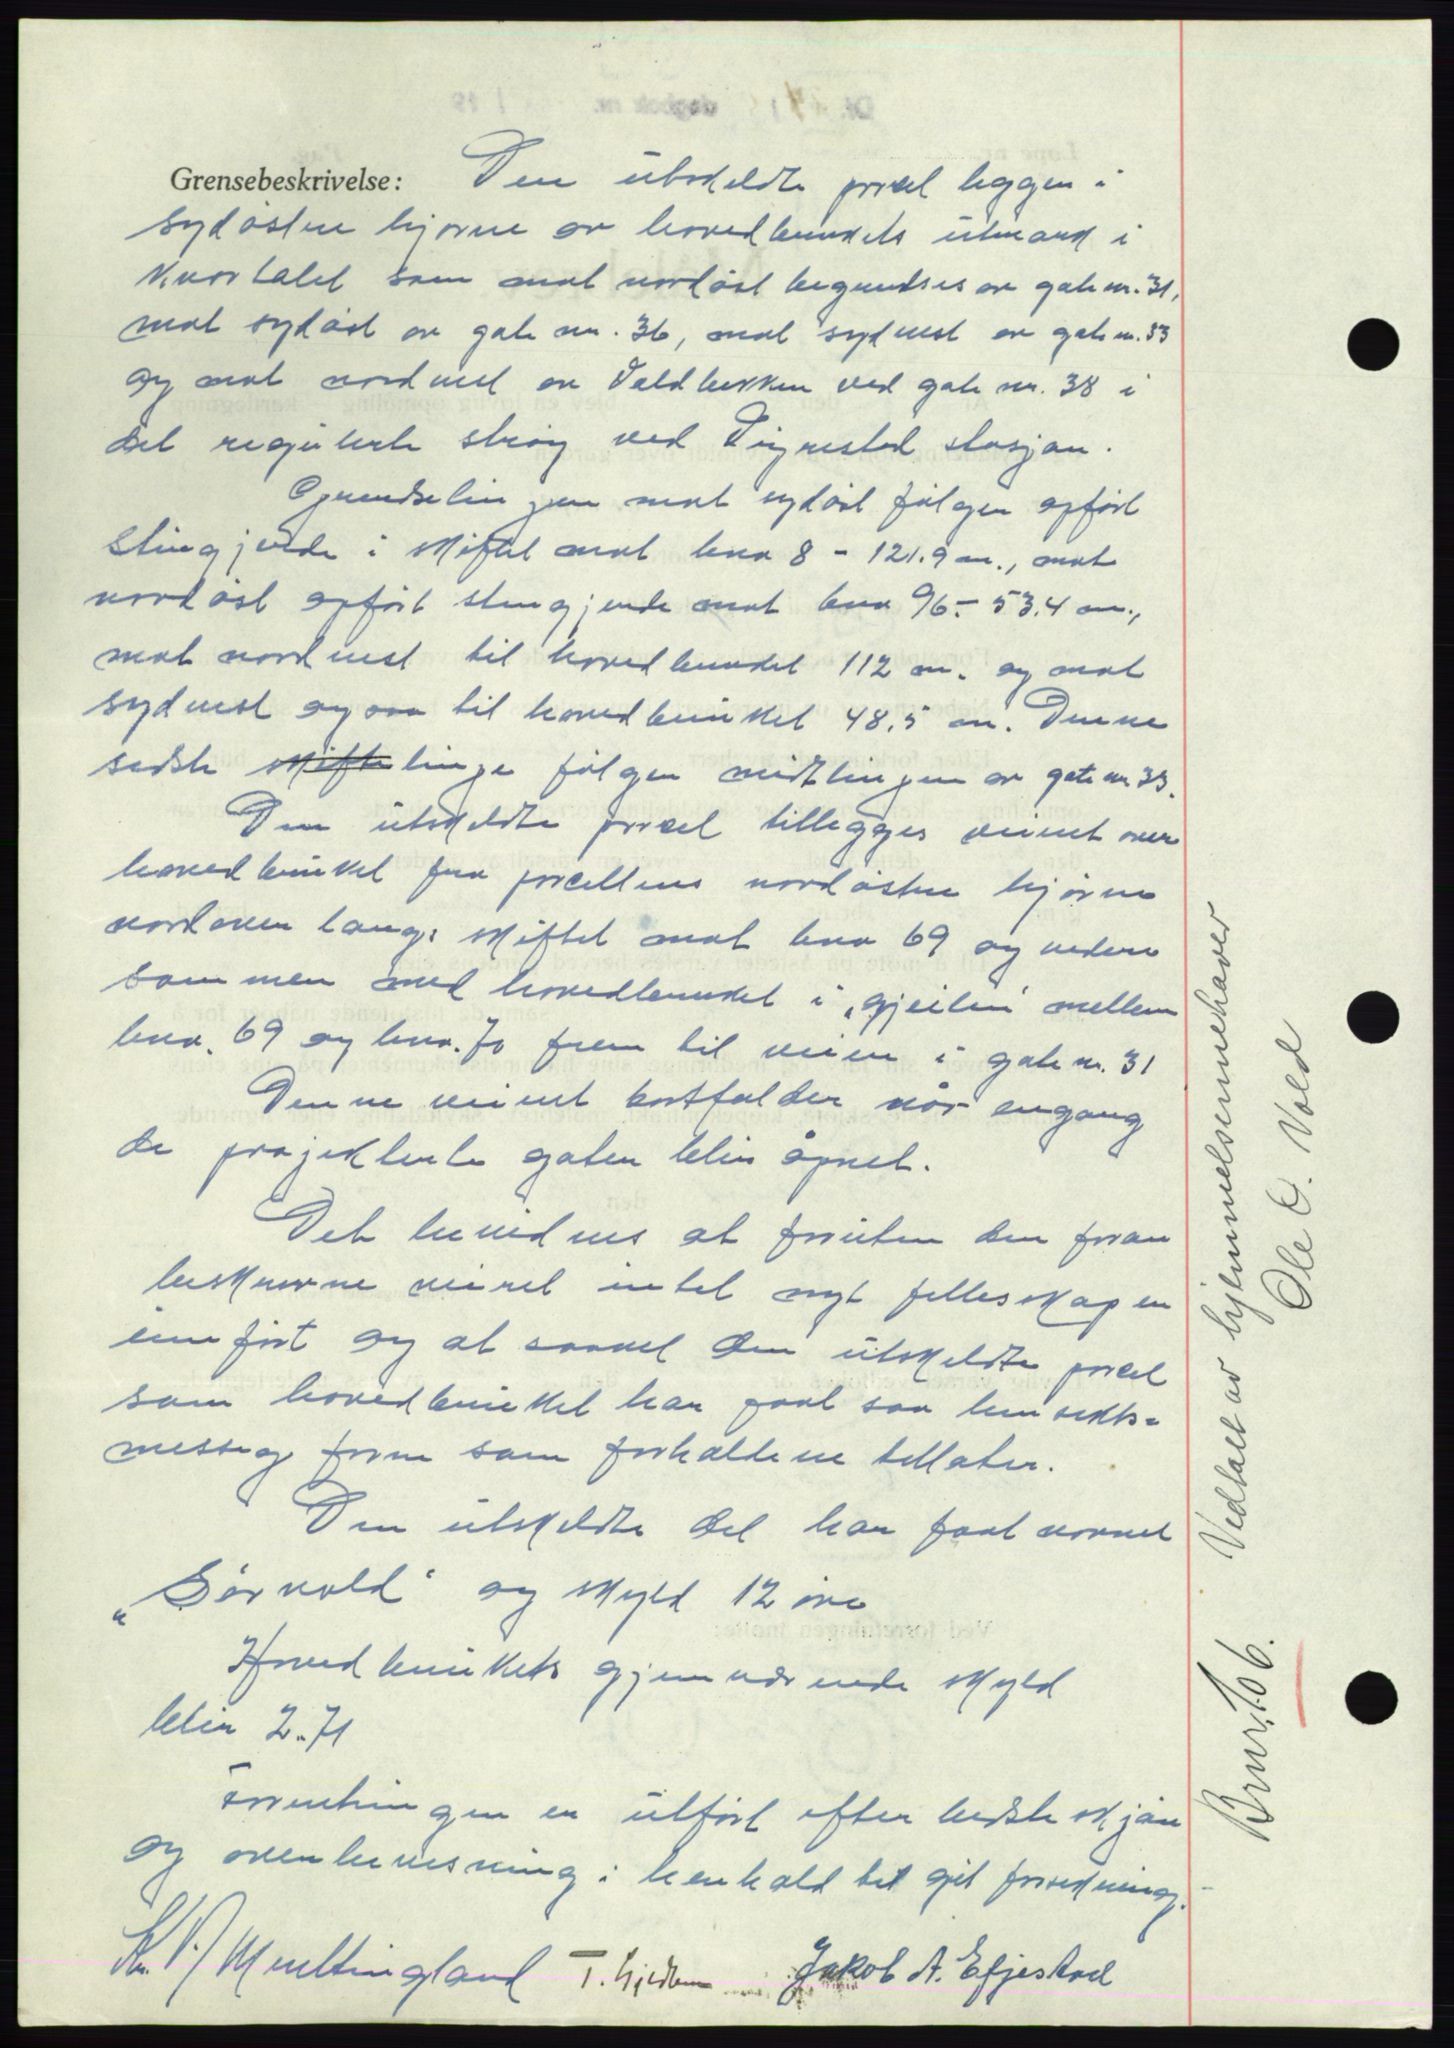 Grensebeskrivelse: Den utskildte parcel ligger i
sydøstre hjørne av hovedbrukets utmark i
kvartalet som mot nordøst begrendses av gate nr. 31,
mot sydøst av gate nr. 36, mot sydvest av gate nr. 33
og mot nordvest av Valdbekken ved gate nr. 38 i
det regulerte strøg ved Vigrestad stasjon.
Grendselinjen mot sydøst følger opført
stingjerde i skiftet mot bno 8 - 121.9 m., mot
nordøst opført stengjerde mot bno 96 - 53.4 m.,
mot nordvest til hovedbruket 112 m. og mot
sydvest ogsaa til hovedbruket 48,5 m. Denne
sidste skifte linje følger midtlinjen av gate nr 33.
Den utskildte parcel tillegges veiret over
hovedbruket fra parcellens nordøstre hjørne
nordover langs skiftet mot bno 69 og videre
sammen med hovedbruket i „gjeilen" mellem
bno. 69 og bno. 70 frem til veien i gate nr. 31
Denne veiret bortfalder når engang
de projekterte gater blir åpnet.
Det bevidnes at foruten den foran
beskrevne veiret intet nyt fellesskap er
innført og at saavel den utskildte parcel
som hovedbruket har faat saa hensikts-
messig form som forholdene tillater.
Den utskildte del har faat navnet
„Sørvold" og skyld 12 øre
Hovedbrukets gjenværende skyld
blir 2.71
Forretningen er utført efter bedste skjøn
og overbevisning i henhold til git forsikring.
Kr. V. Mulltingland T. Gjedrem Jakob A. Efjestad
Vedtatt av hjemmelsinnehaver
Ole O. Vold
Bnr. 106.